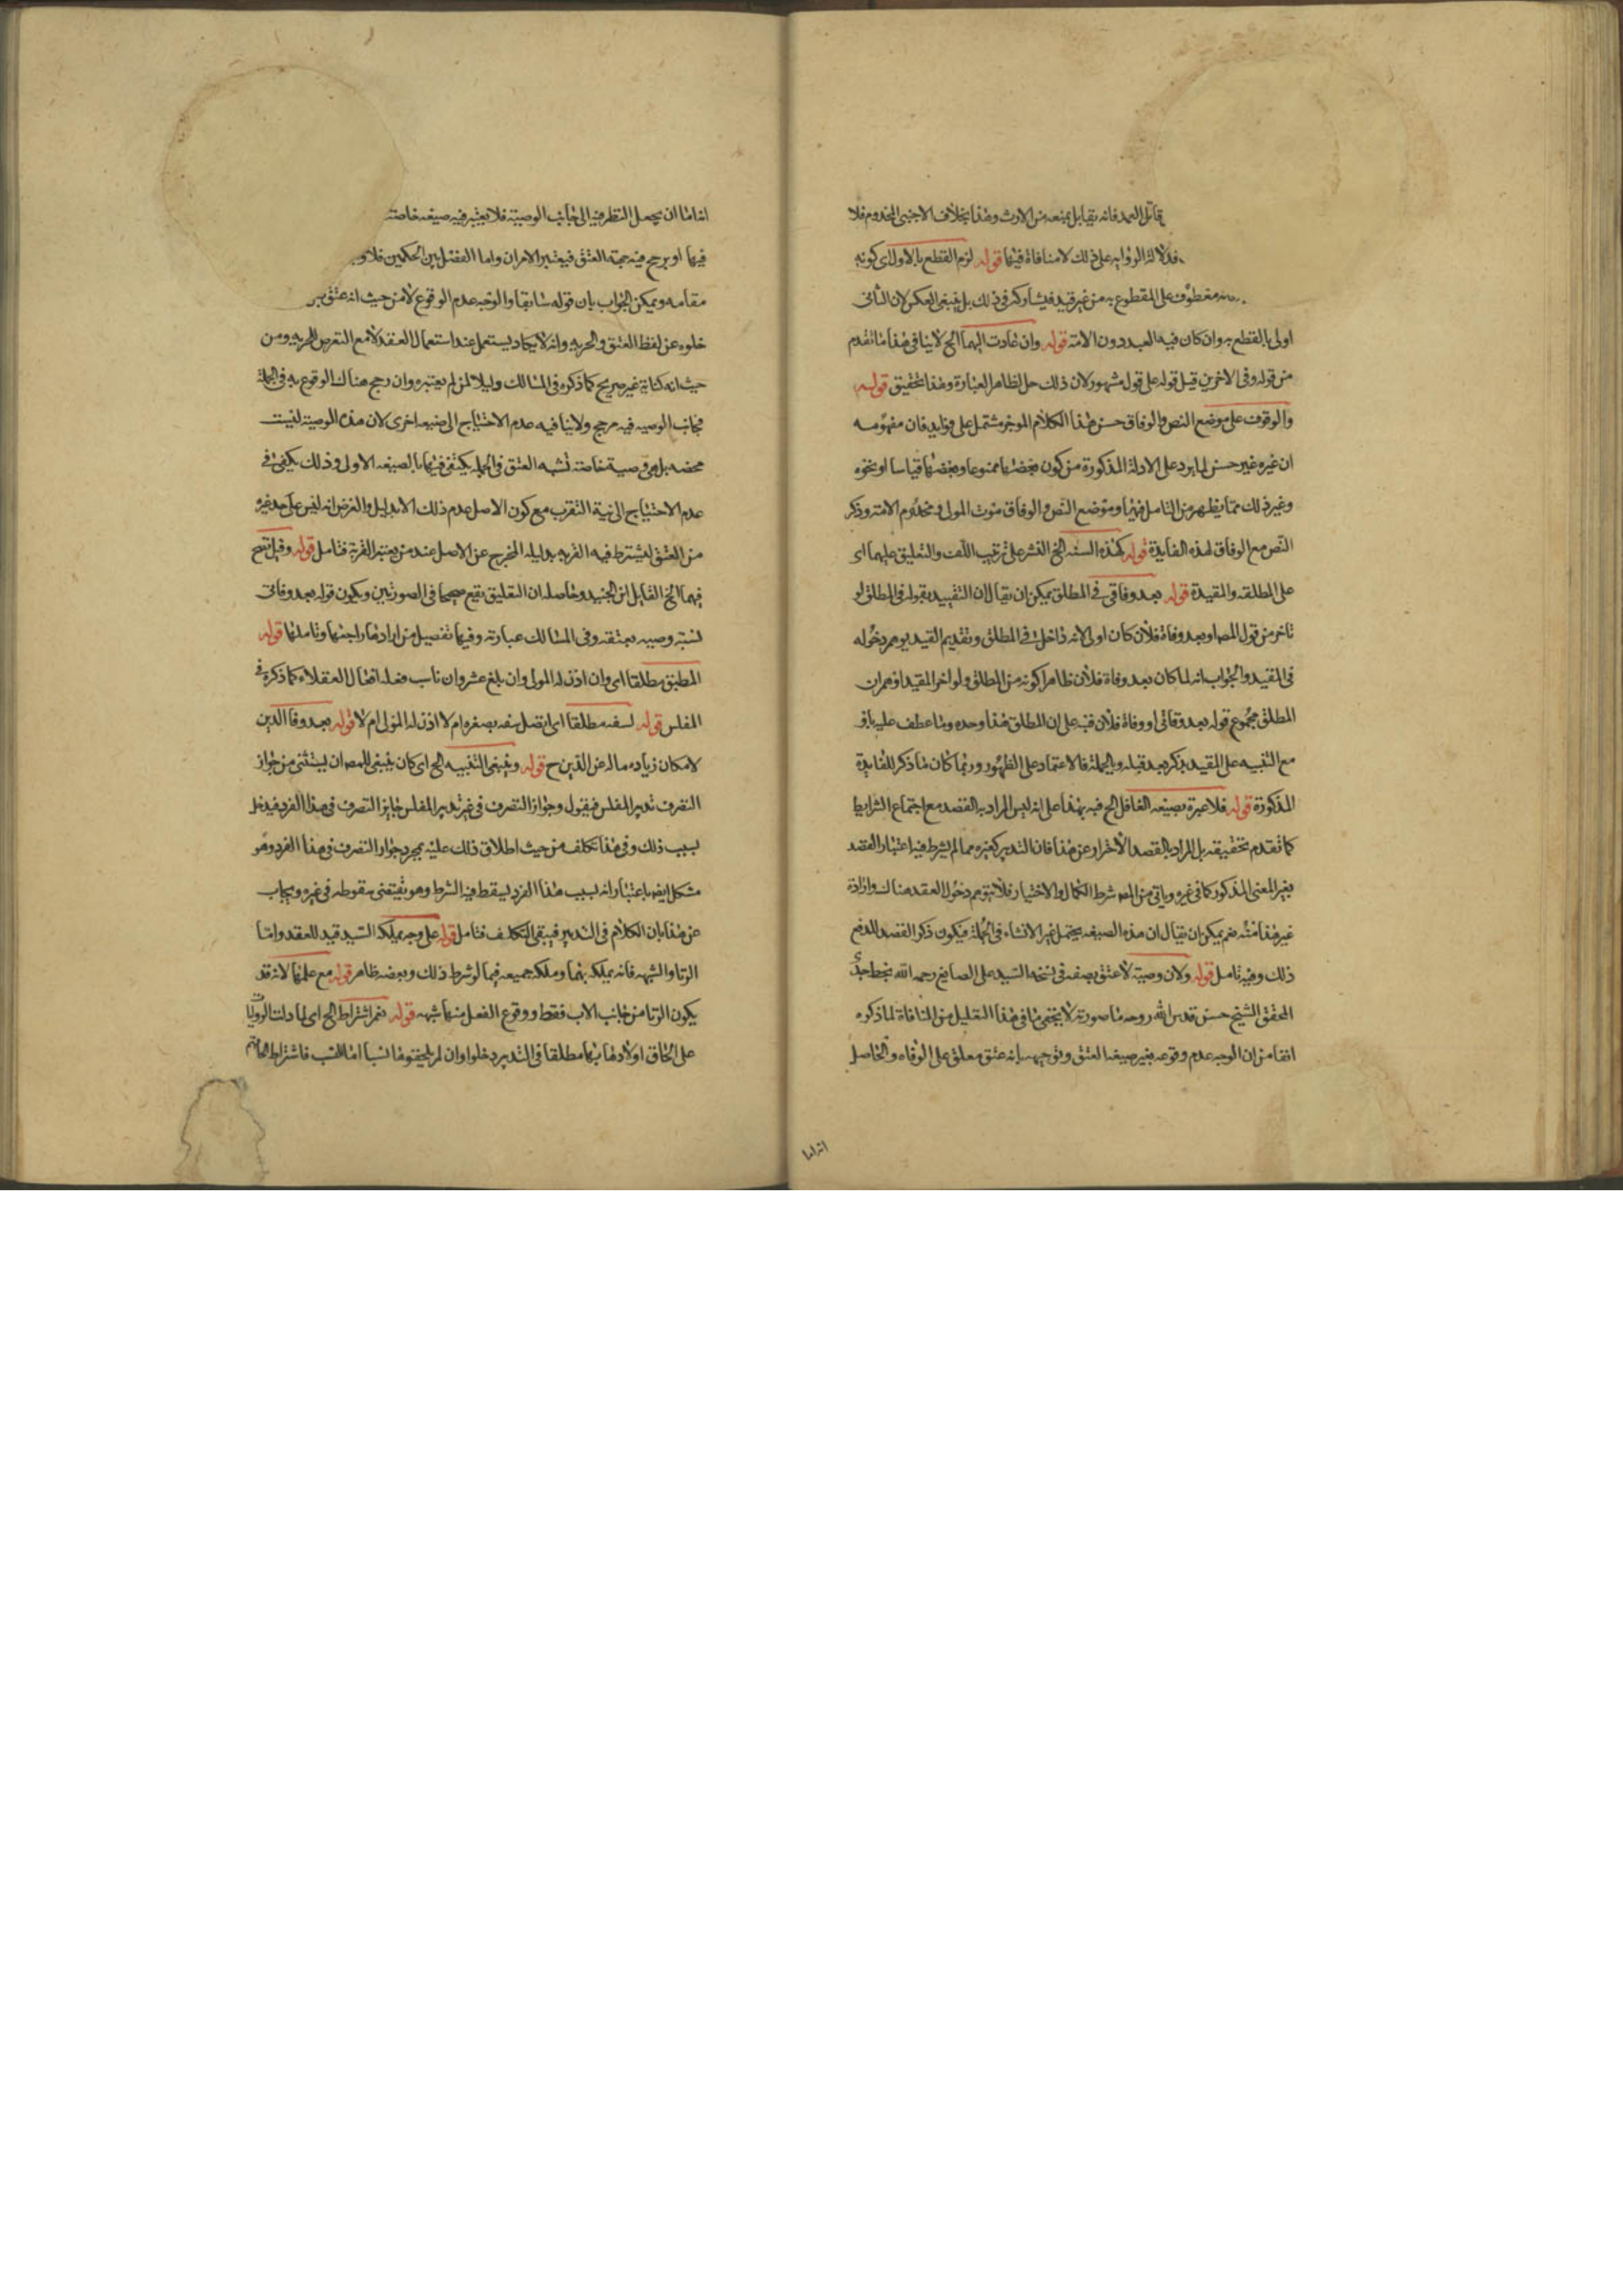 قاتل العمد فانه يقابل بمنعه من الارث وهذا بخلاف الاجنبي المخدوم فلا
فدلالة الروايه على ذلك لا منافاة فيها قوله لزم القطع بالاول اي كونه
معطوف على المقطوع به من غير قيد فيشاركه في ذلك بل ينبغي العكس لان الثاني
اولى بالقطع به وان كان فيه العبد دون الامة قوله وان عادت اليهما الخ لا ينافي هذا ما تقدم
من قوله وفي الاخرين قيل قوله على قول مشهور لان ذلك حل لظاهر العبارة وهذا تحقيق قوله
والوقوف على موضع النص والوفاق حسن هذا الكلام الموجز مشتمل على فوايد فان مفهومه
ان غيره غير حسن لما يرد على الادلة المذكورة من كون بعضها ممنوعا وبعضها قياسا او نحوه
وغير ذلك مما يظهر من التامل فيها وموضع النص والوفاق موت المولى ومخدوم الامة وذكر
النص مع الوفاق لهذه الفايدة قوله كهذه السنه الخ النشر على ترتيب اللف والتعليق عليهما اى
على المطلقه والمقيدة قوله بعد وفاتي في المطلق يمكن ان يقال ان التقييد بقوله في المطلق لو
تاخر من قول المص او بعد وفاة فلان كان اولى لانه داخل في المطلق وتقديم القيد يوهم دخوله
في المقيد والجواب انه لما كان بعد وفاة فلان ظاهرا كونه من المطلق ولو اخر المقيد اوهم ان
المطلق مجموع قوله بعد وفاتي او وفاة فلان نبه على ان المطلق هذا وحده وما عطف عليه باو
مع التنبيه على المقيد بذكر بعد قبله وبالجملة فالاعتماد على الظهور وربما كان ما ذكر للفايدة
المذكورة قوله فلا عبرة بصيغه الغافل الخ نبه بهذا على انه ليس المراد به القصد مع اجتماع الشرايط
كما تقدم تحقيقه بل المراد بالقصد الاحتراز عن هذا فان التدبير كغيره مما لم يشرط فيه اعتبار القصد
بغير المعنى المذكور كما في غيره وياتي من المص شرط الكمال والاختيار فلا يتوهم دخول العقد هناك وارادة
غير هذا منه نعم يمكن ان يقال ان هذه الصيغه يحتمل غير الانشاء في الجملة فيكون ذكر القصد للدفع
ذلك وفيه تامل قوله ولان وصية لا عتق بصفه في نسخه السيد على الصايغ رحمه الله بخط جدي
المحقق الشيخ حسن قدس الله روحه ما صورته لا يخفى ما في هذا التعليل من المنافاة لما ذكره
انفا من ان الوجه عدم وقوعه بغير صيغه العتق وتوجيهه بانه عتق معلق على الوفاه والحاصل
انه اما
انه اما ان يجعل النظر فيه الى جانب الوصية فلا يعتبر فيه صيغه خاصة
فيها او يرجح فيه جهة العتق فيعتبر الامران واما الفصل بين الحكمين فلا
مقامه ويمكن الجواب بان قوله سابقا والوجه عدم الوقوع لا من حيث انه عتق
خلوه عن لفظ العتق والحريه وانه لا يكاد يستعمل عند استعمال العقد لا مع التعرض للحريه ومن
حيث انه كناية غير صريح كما ذكره في المسالك وليلا لمن لم يعتبره وان رجح هناك الوقوع به في الجملة
فجانب الوصيه فيه مرجح ولا ينافيه عدم الاحتياج الى صيغه اخرى لان هذه الوصية ليست
محضه بل هي وصية خاصة تشبه العتق في الجمله يكتفى فيها بالصيغه الاولى وذلك يكفي في
عدم الاحتياج الى نية التقرب مع كون الاصل عدم ذلك الا بدليل والغرض انه ليس على حد غيره
من العتق ليشترط فيه القربه بدليله المخرج عن الاصل عند من يعتبر القربة فتامل قوله وقيل تصح
فيهما الخ القايل ابن الجنيد وحاصله ان التعليق يقع صحيحا في الصورتين ويكون قوله بعد وفاتي
لسنة وصيه بعتقه وفي المسالك عبارته وفيها تفصيل من ارادها راجعها وتاملها قوله
المطبق مطلقا اى وان اذن له المولى وان بلغ عشر وان ناسب فعله افعال العقلاء كما ذكره في
المفلس قوله لسفه مطلقا اى اتصل سفهه بصغره ام لا اذن له المولى ام لا قوله بعد وفا الدين
لامكان زياده ماله عن الدين ح قوله وينبغي التنبيه الخ اى كان ينبغي للمص ان يستثنى من جواز
التصرف تدبير المفلس فيقول وجواز التصرف في غير تدبير المفلس جايز التصرف في هذا الفرد فيدخل
بسبب ذلك وفي هذا تكلف من حيث اطلاق ذلك عليه بمجرد جواز التصرف في هذا الفرد وهو
مشكل ايض باعتبار انه بسبب هذا الفرد يسقط فيه الشرط وهو يقتضي سقوطه في غيره ويجاب
عن هذا بان الكلام في التدبير فيبقى التكلف فتامل قوله على وجه يملكه السيد قيد للعقد واما
الزنا والشبهه فانه يملكه بهما وملكه جميعه فيما لو شرط ذلك وبعضه ظاهر قوله مع علمها لانه قد
يكون الزنا من جانب الاب فقط ووقوع الفعل منها شبهه قوله نعم اشتراط الخ اى لما دلت الروايات
على الحاق اولادها بها مطلقا في التدبير دخلوا وان لم يلحقوها نسبا اما النسب فاشتراط الحاقهم